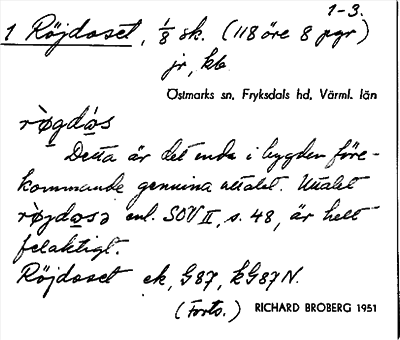 1-3.
1 Röjdoset, 1/8 sk. (118 öre 8 pgr)
jr, kb
Östmarks sn, Fryksdals hd, Värml. län
rògdo̱s
Detta är det enda i bygden före-
kommande genuina uttalet. Uttalet
rògdo̱sə enl. SOV II, s. 48, är helt
felaktigt.
Röjdoset ek, G87, kG87N.
(Forts.)
RICHARD BROBERG 1951